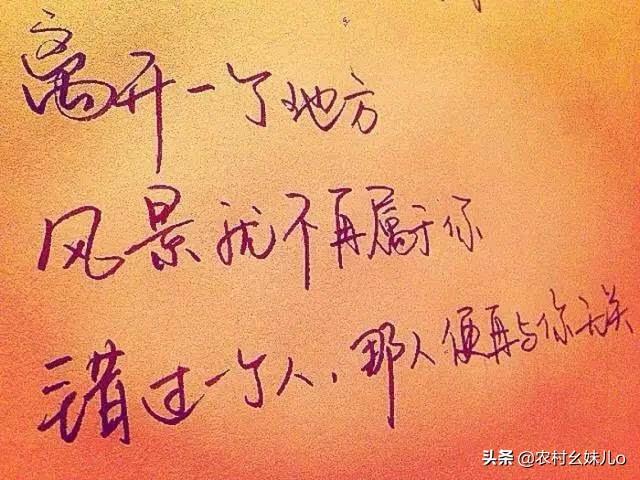 离开一个地方
风景就不再属于你
错过一个人，那人便再与你无关
头条 @农村幺妹儿o